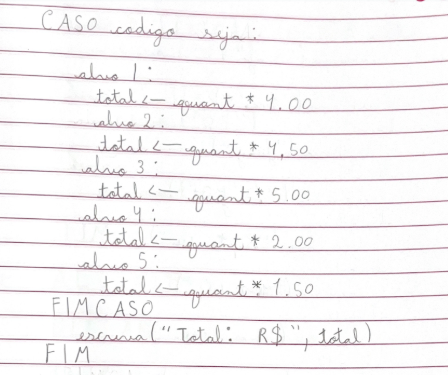 CASO codigo seja:
alvo 1:
total <- quant * 4.00
alvo 2:
total <- quant * 4,50
alvo 3:
total <- quant * 5.00
alvo 4:
total <- quant * 2.00
alvo 5:
total <- quant * 1.50
FIMCASO
escreva("Total: R$", total)
FIM